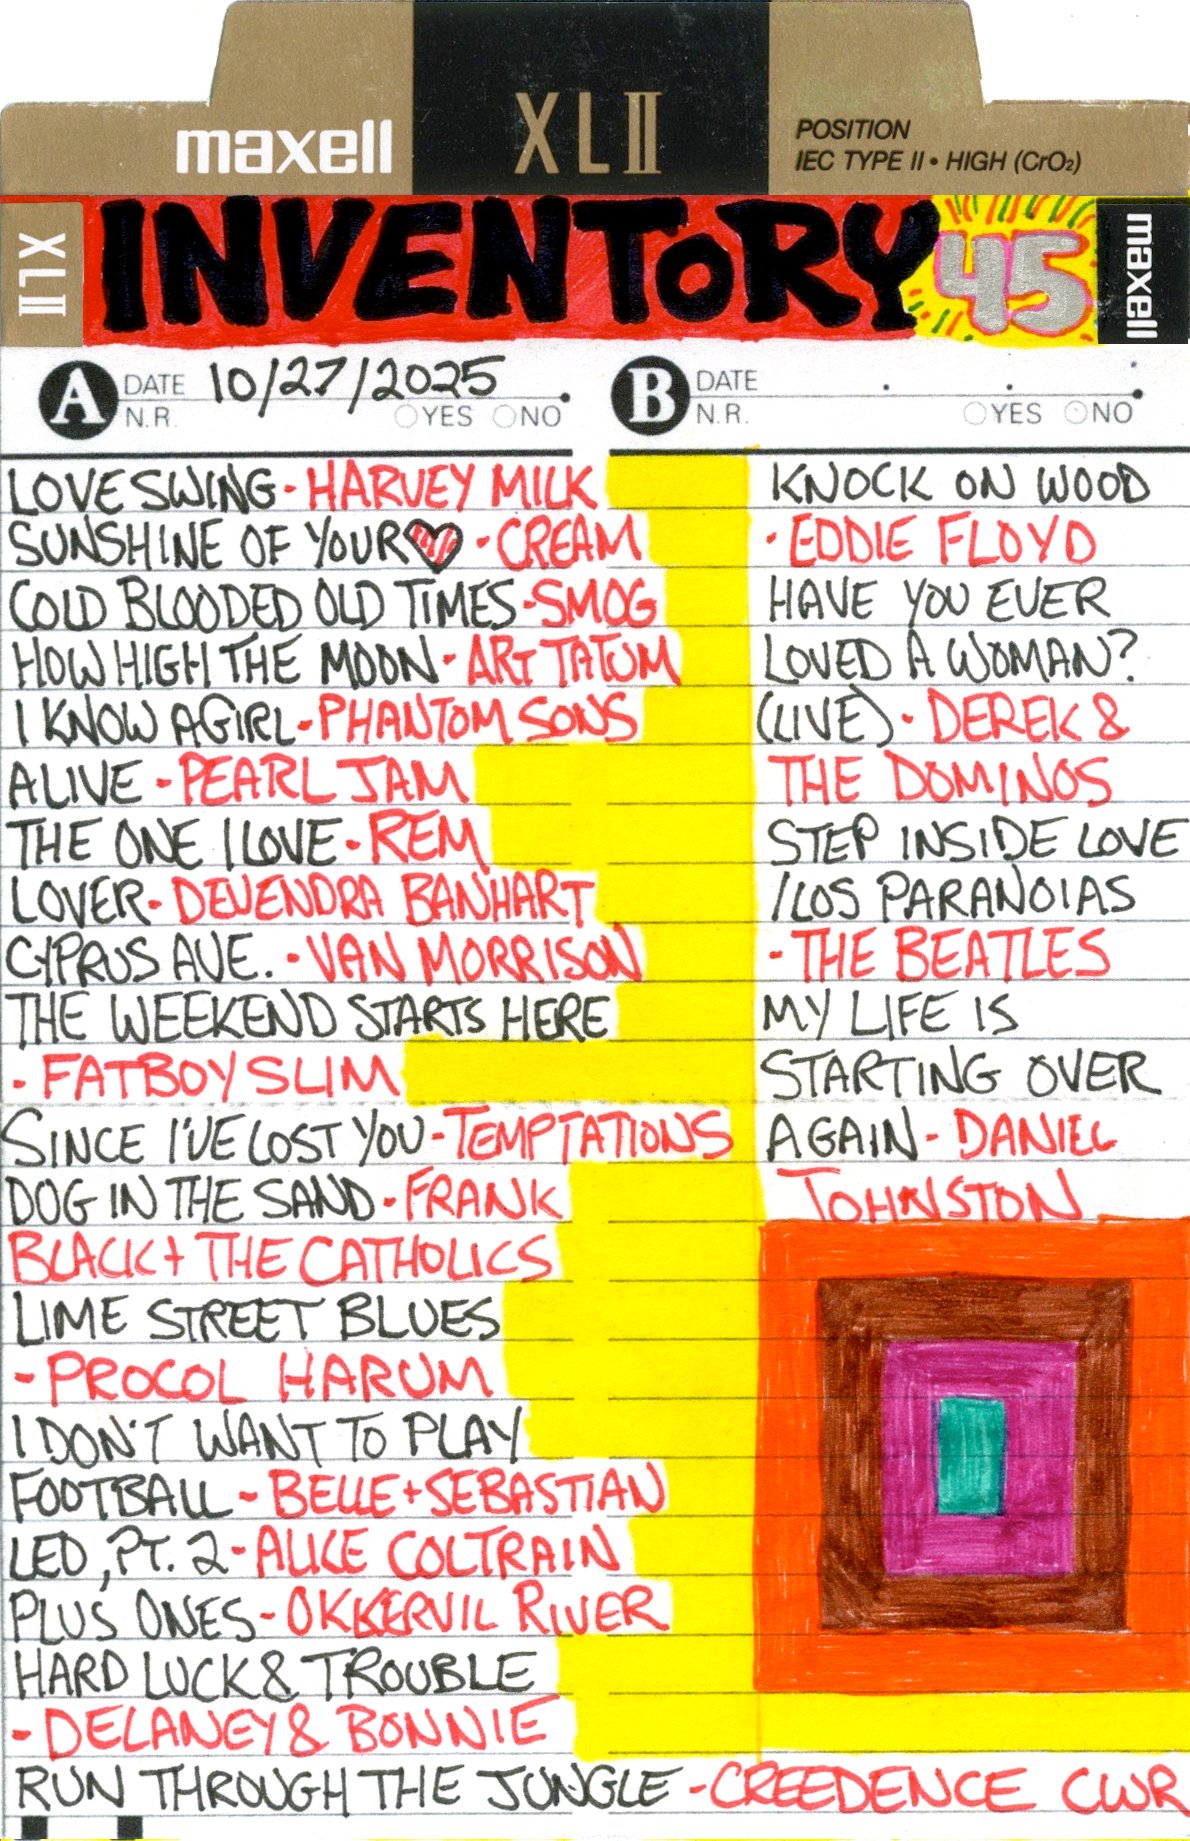 maxell XLII POSITION
IEC TYPE II • HIGH (CrO₂)
XLII INVENTORY 45 maxell
A DATE 10/27/2025
N.R. YES NO
B DATE
N.R. YES NO
LOVE SWING - HARVEY MILK
SUNSHINE OF YOUR ♥ - CREAM
COLD BLOODED OLD TIMES - SMOG
HOW HIGH THE MOON - ART TATUM
I KNOW A GIRL - PHANTOM SONS
ALIVE - PEARL JAM
THE ONE I LOVE - REM
LOVER - DEVENDRA BANHART
CYPRUS AVE. - VAN MORRISON
THE WEEKEND STARTS HERE
- FATBOY SLIM
SINCE I'VE LOST YOU - TEMPTATIONS
DOG IN THE SAND - FRANK
BLACK + THE CATHOLICS
LIME STREET BLUES
- PROCOL HARUM
I DON'T WANT TO PLAY
FOOTBALL - BELLE + SEBASTIAN
LED, PT. 2 - ALICE COLTRAIN
PLUS ONES - OKKERVIL RIVER
HARD LUCK & TROUBLE
- DELANEY & BONNIE
RUN THROUGH THE JUNGLE - CREEDENCE CWR
KNOCK ON WOOD
- EDDIE FLOYD
HAVE YOU EVER
LOVED A WOMAN?
(LIVE) - DEREK &
THE DOMINOS
STEP INSIDE LOVE
/LOS PARANOIAS
- THE BEATLES
MY LIFE IS
STARTING OVER
AGAIN - DANIEL
JOHNSTON